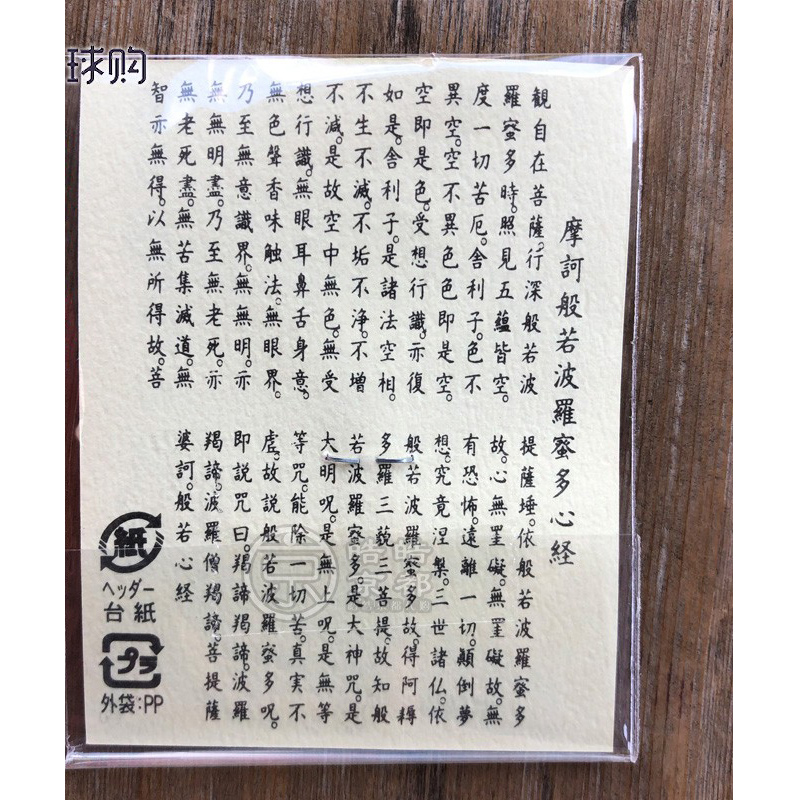 摩訶般若波羅蜜多心経
観自在菩薩。行深般若波
羅蜜多時。照見五蘊皆空。
度一切苦厄。舎利子。色不
異空。空不異色。色即是空。
空即是色。受想行識。亦復
如是。舎利子。是諸法空相。
不生不滅。不垢不浄。不増
不減。是故空中無色。無受
想行識。無眼耳鼻舌身意。
無色聲香味触法。無眼界。
乃至無意識界。無無明。亦
無無明盡。乃至無老死。亦
無老死盡。無苦集滅道。無
智亦無得。以無所得故。菩
提薩埵。依般若波羅蜜多
故。心無罣礙。無罣礙故。無
有恐怖。遠離一切。顛倒夢
想。究竟涅槃。三世諸仏。依
般若波羅蜜多故。得阿耨
多羅三藐三菩提。故知般
若波羅蜜多。是大神咒。是
大明呪。是無上呪。是無等
等咒。能除一切苦。真実不
虚。故説般若波羅蜜多呪。
即説咒曰。羯諦羯諦。波羅
羯諦。波羅僧羯諦。菩提薩
婆訶。般若心経
紙
ヘッダー
台紙
プラ
外袋:PP
球购